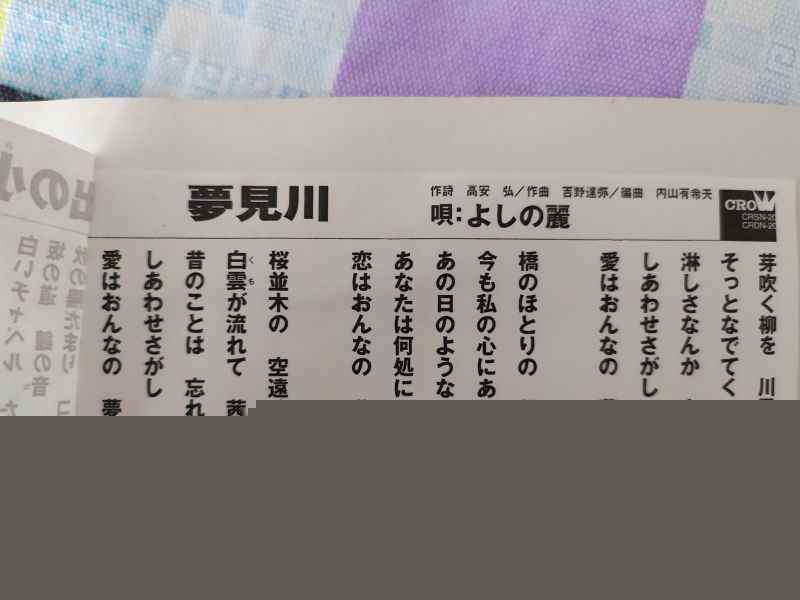 夢見川
作詩 高安 弘/作曲 吉野達弥/編曲 内山有希夫
唄:よしの麗
CROWN
CRSN-20
CRDN-20
芽吹く柳を 川
そっとなでてく
淋しさなんか
しあわせさがし
愛はおんなの
橋のほとりの
今も私の心にあ
あの日のような
あなたは何処に
恋はおんなの
桜並木の 空遠
白雲が流れて 茜
くも
昔のことは 忘れ
しあわせさがし
愛はおんなの 夢
出の小
秋の陽だまり コ
坂の道 鐘の音
白いチャペル た